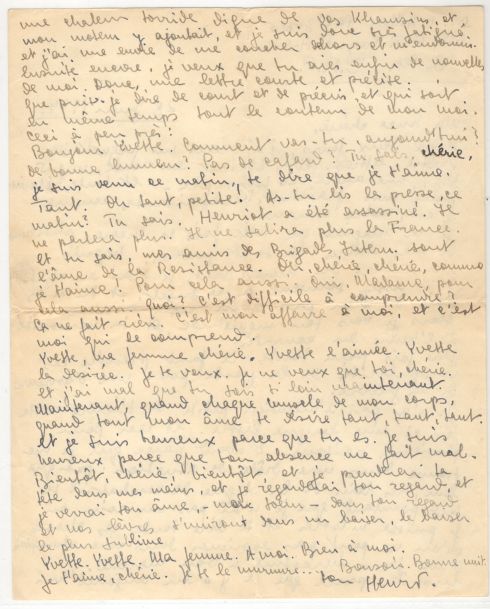 une chaleur torride digne de vos Khamsins, et
mon moteur y ajoutait, et je suis donc très fatigué.
et j'ai une envie de me coucher dehors et m'endormir.
Ensuite encore, je veux que tu aies enfin de nouvelles
de moi. Donc, une lettre courte et précise.
que puis-je dire de court et de précis, et qui soit
en même temps tout le contenu de mon moi.
Ceci à peu près:
Bonjour Yvette. Comment vas-tu, aujourd'hui?
de bonne humeur? Pas de cafard? Tu sais, chérie,
je suis venu ce matin, te dire que je t'aime.
Tant. Oh tant, petite! As-tu lis la presse, ce
matin? Tu sais, Henriot a été assassiné. Il
ne parlera plus. Il ne salira plus la France.
et tu sais, mes amis des Brigades Intern. sont
l'âme de la Resistance. Oui, chérie, chérie, comme
je t'aime! Pour cela aussi. Oui, Madame, pour
cela aussi. quoi? C'est difficile à comprendre?
Ça ne fait rien. C'est mon affaire à moi, et c'est
moi qui le comprend.
Yvette, ma femme chérie. Yvette l'aimée. Yvette
la desirée. Je te veux. Je ne veux que toi, chérie.
et j'ai mal que tu sois si loin maintenant.
Maintenant, quand chaque muscle de mon corps,
quand tout mon âme te désire tant, tant, tant.
et je suis heureux parce que tu es. Je suis
heureux parce que ton absence me fait mal.
Bientôt, chérie, bientôt, et je prenderai ta
tête dans mes mains, et je regarderai ton regard, et
je verrai ton âme, - mon âme - dans ton regard
et nos lèvres s'uniront dans un baiser, le baiser
le plus sublime
Yvette. Yvette. Ma femme. A moi. Bien à moi.
je t'aime, chérie. Je te le murmure... Bonsoir. Bonne nuit.
ton Henri.